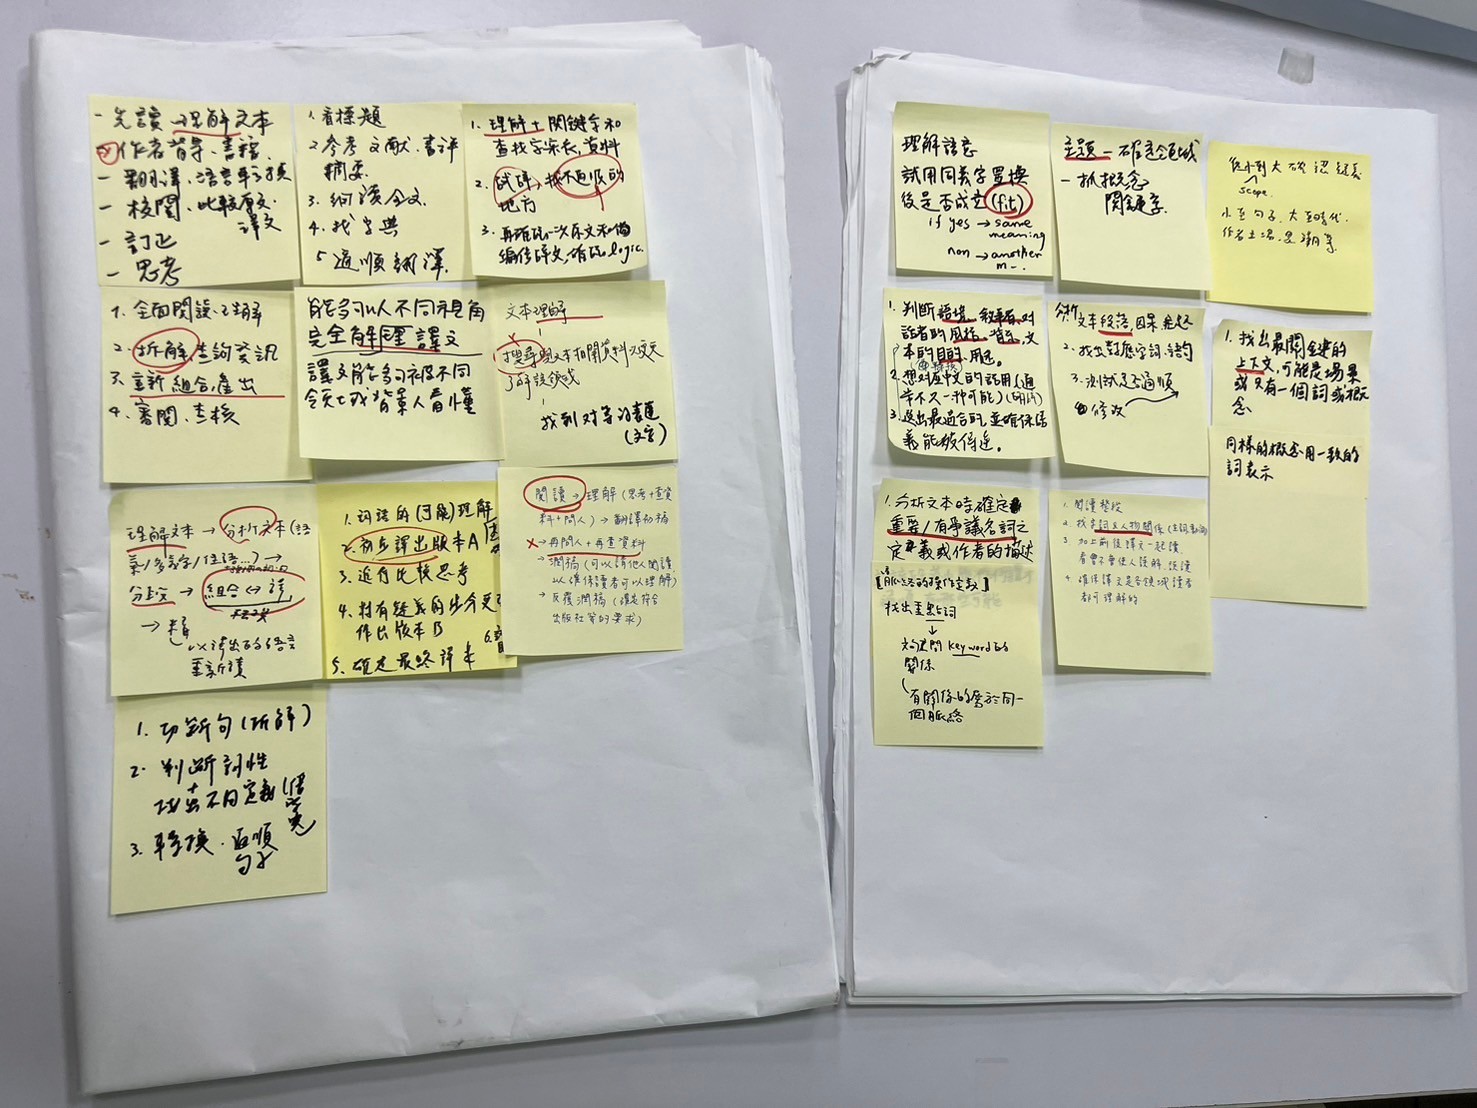 - 先讀、理解文本
作者背景、書籍
- 翻譯、語言轉換
- 校閱、比較原文、
譯文
- 訂正
- 思考
1. 看標題
2. 參考文獻、書評
摘要
3. 細讀全文
4. 找字典
5. 通順翻譯
1. 理解 + 關鍵字和
查找字來表, 資料
2. 試譯, 找不通順的
地方
3. 再確認一次原文和
譯文, 確認 logic.
1. 全面閱讀、理解
2. 拆解, 查詢資訊
3. 重新組合, 產出
4. 審閱、查核
能夠以不同視角
完全解理譯文
譯文能夠被不同
領域背景人看懂
文本理解
搜尋與文本相關資料以更
了解該領域
找到對等的書寫
(文字)
理解文本 → 分析文本 (語
氣/多義字/狀語...) →
分段 → 組合 ↔ 譯
→
重新讀
1. 詞語的(可能)理解
2. 初步譯出版本A
3. 進行比較思考
4. 將有疑義的部分更
作出版本B
5. 確定最終譯本
6.
閱讀 → 理解 (思考+查資
料+問人) → 翻譯初稿
→ 再問人 + 再查資料
→ 潤稿 (可以請他人閱讀
以確保讀者可以理解)
→ 反覆潤稿 (確定符合
出版社等的要求)
1. 切斷句 (拆解)
2. 判斷詞性
+
找出不同定義
3. 轉換、通順
句子
理解語意
試用同義字置換
後是否成立 (fit)
if yes → same
meaning
non → another
m-.
主題 - 確定領域
- 抓概念
關鍵字
從小到大 確認 疑義
scope
小至句子, 大至時代,
作者立場、思潮等
1. 判斷語境、敘事者、對
話者的風格、背景、文
本的目的、用途。
2. 想對應中文的話用 (通
常不只一種可能)
3. 選出最適合的, 並確保語
義能被傳達。
分析文本段落, 因果 敘述
2. 找出對應字詞、語句
3. 測試是否通順
4. 修改
1. 找出最關鍵的
上下文, 可能是場景
或只有一個詞或概
念
同樣的概念用一致的
詞表示
1. 分析文本時確定
重要/有爭議名詞之
定義或作者的描述
【脈絡的操作定義】
找出重點詞
↓
建問 keyword 的
關係
有關係的屬於同一
個脈絡
1. 閱讀整段
2. 找名詞及人物關係
3. 加上前後譯文一起讀
看會不會使人誤解、誤讀
4. 確保譯文是各領域讀者
都可理解的